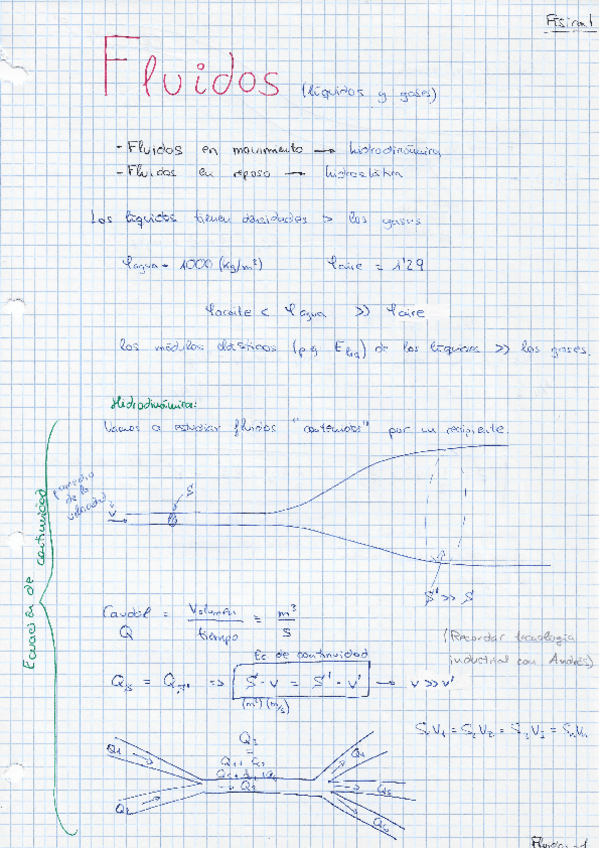 Física 1
Fluidos (líquidos y gases)
- Fluidos en movimiento → hidrodinámica
- Fluidos en reposo → hidrostática
Los líquidos tienen densidades > los gases
ρagua = 1000 (kg/m³) ρaire = 1'29
ρaceite < ρagua >> ρaire
Los módulos elásticos (p.ej. Eliq) de los líquidos >> los gases.
Hidrodinámica:
Vamos a estudiar fluidos "contenidos" por un recipiente.
Ecuación de continuidad
de la velocidad
v
S
S' >> S
Caudal = Volumen / tiempo = m³ / s
Q
(Recordar tecnología
industrial con Andrés)
Ec de continuidad
Qs = Qs' => S · v = S' · v' → v >> v'
(m²) (m/s)
S₁V₁ = S₂V₂ = S₃V₃ = SₙVₙ
Q₁
Q₂
Q₃
=
Q₄
Q₅
Q₆